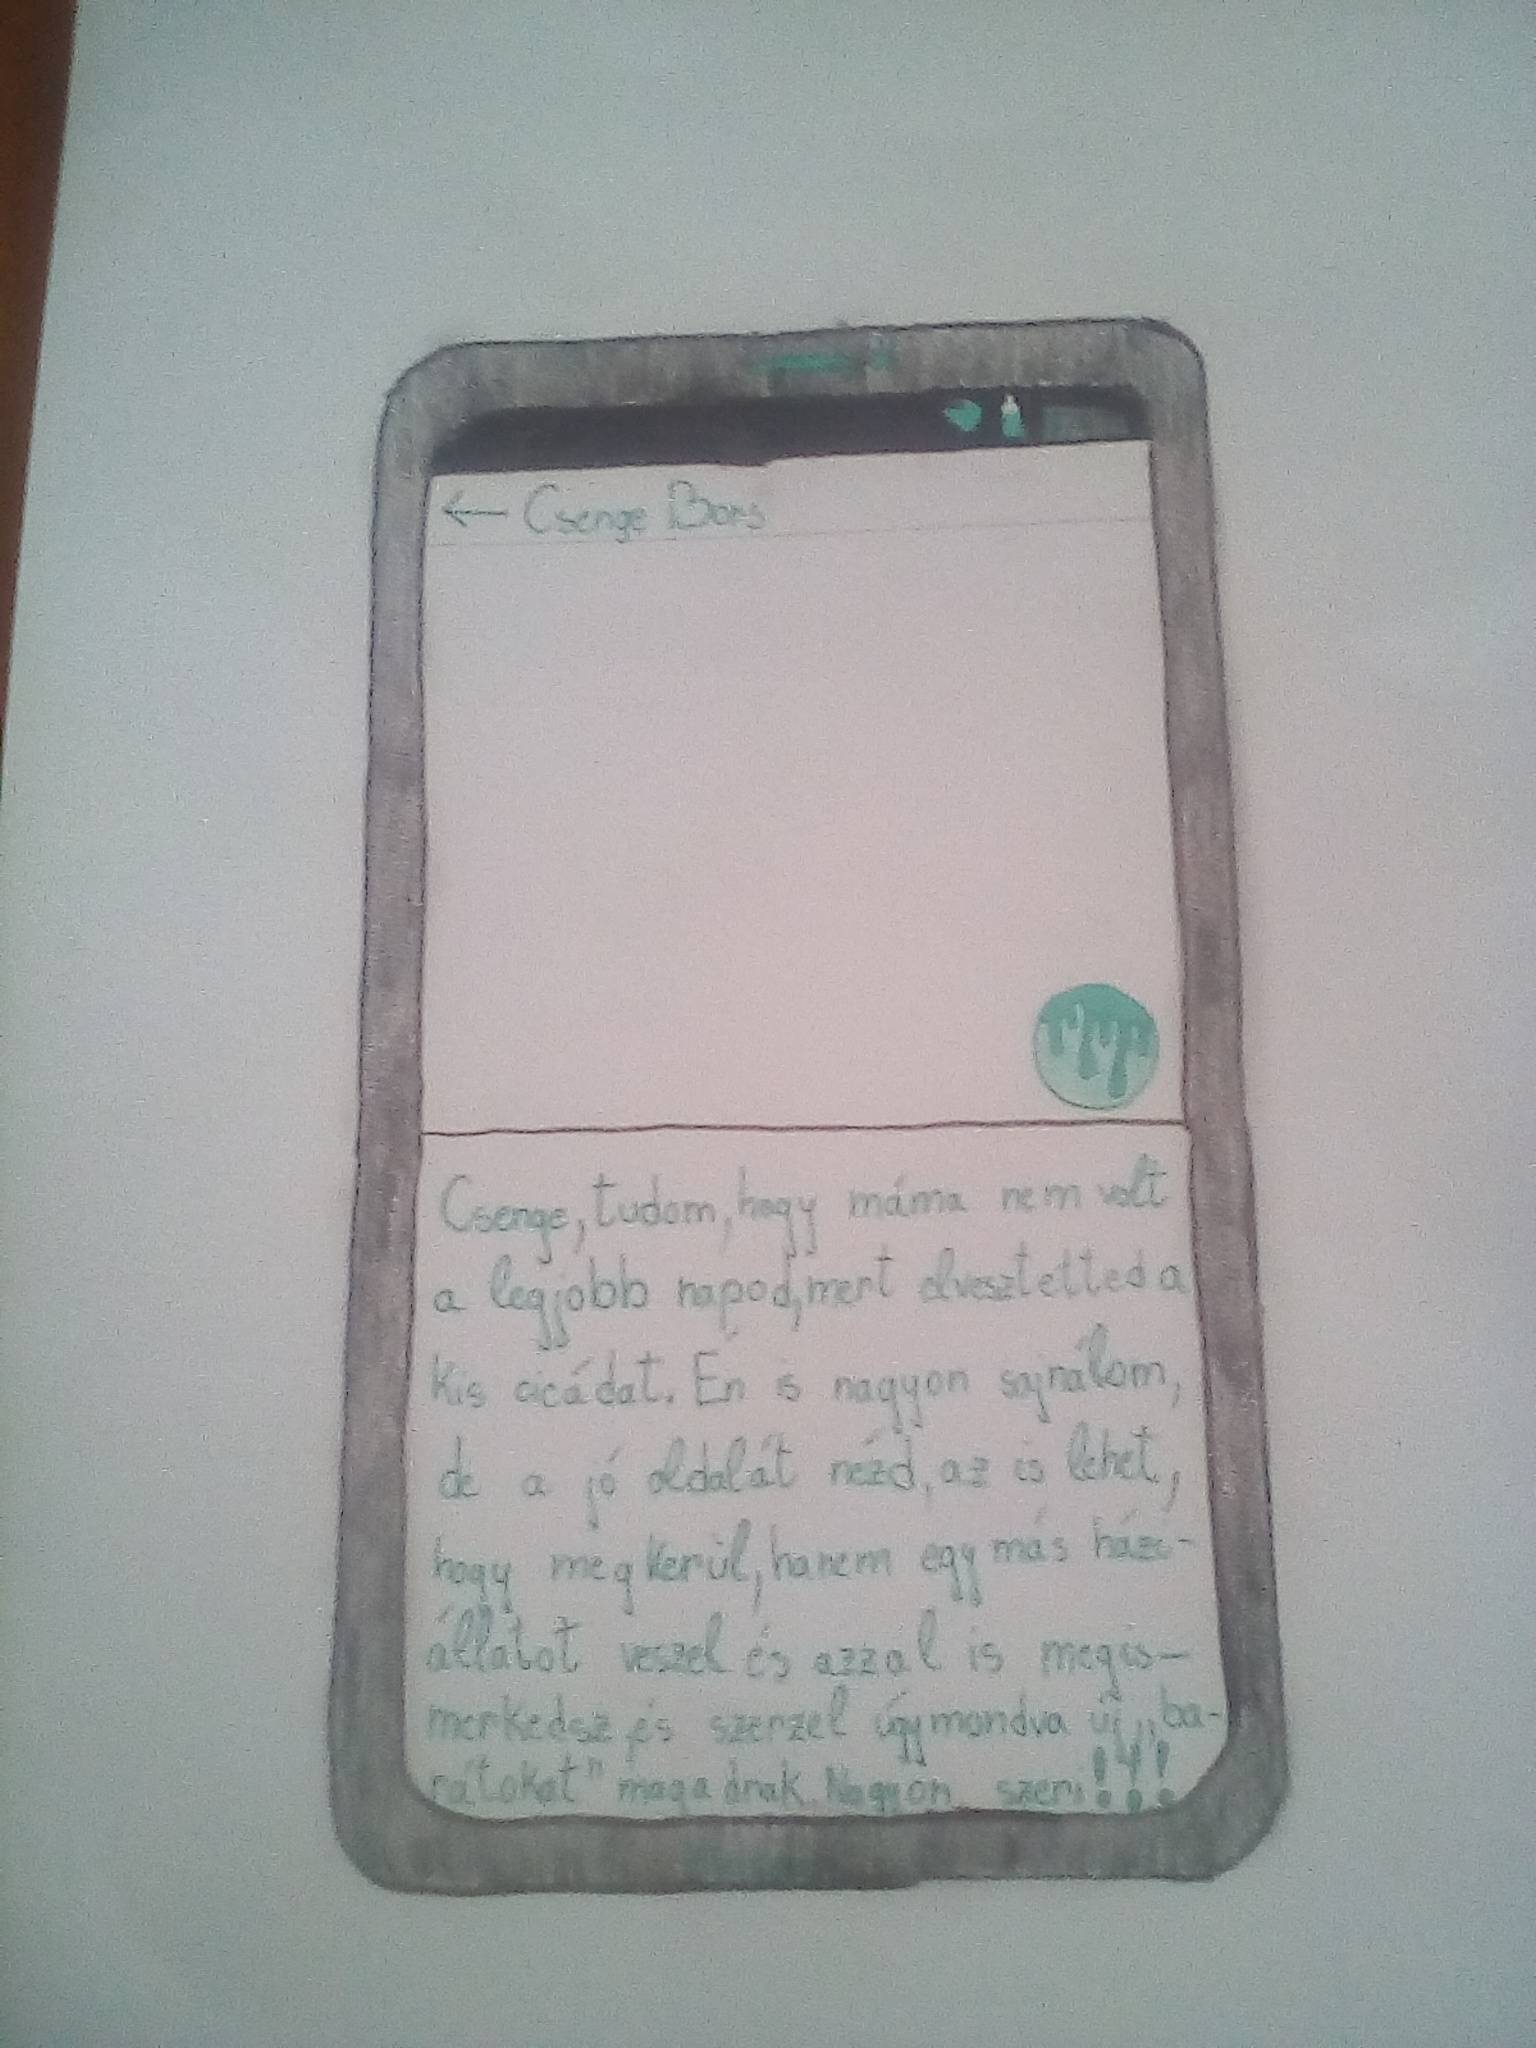 ← Csenge Bors
Csenge, tudom, hogy máma nem volt
a legjobb napod, mert elvesztetted a
kis cicádat. Én is nagyon sajnálom,
de a jó oldalát nézd, az is lehet,
hogy megkerül, hanem egy más házi-
állatot veszel és azzal is megis-
merkedsz és szerzel úgymondva új „ba-
rátokat" magadnak. Nagyon szeri!!!